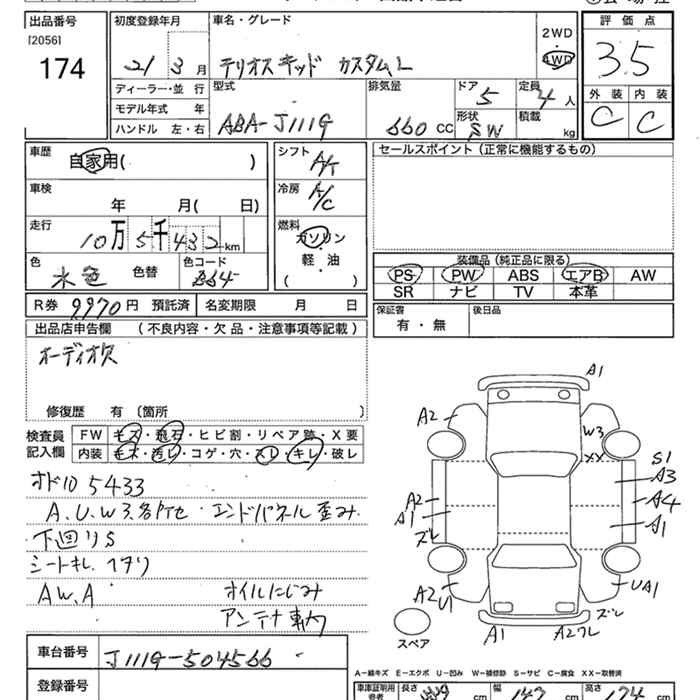 出品番号
[2056]
174
初度登録年月
21 3 月
ディーラー・並 行
モデル年式 年
ハンドル 左・右
車名・グレード
テリオスキッド カスタムL
2WD
4WD
型式
ABA-J111G
排気量
660 CC
ドア
5
定員
4 人
形状
SW
積載
kg
評 価 点
3.5
外 装
内 装
C
C
車歴
自家用( )
車検
年 月( 日)
走行
10万5千432km
色
水色
色替
色コード
シフト
A/T
冷房
A/C
燃料
ガソリン
軽・油
( )
R券 9970円 預託済
名変期限 月 日
セールスポイント(正常に機能するもの)
装備品(純正品に限る)
PS PW ABS エアB AW
SR ナビ TV 本革
保証書
有・無
後日品
出品店申告欄 (不良内容・欠品・注意事項等記載)
オーディオ欠
修復歴 有〔箇所 〕
検査員
記入欄
FW キズ・飛石・ヒビ割・リペア跡・X要
内装 キズ・汚レ・コゲ・穴・スレ・キレ・破レ
オドロ 5433
A.U.W3.各所セ・エンドパネル歪み.
下回りS
シートキレ.
AW.A
オイルにじみ
アンテナ
車台番号
J111G-504566
登録番号
A1
A2
W3
XX
S1
A3
A4
A1
A2
A1
ズレ
A2
U1
UA1
ズレ
A1
A2ワレ
スペア
A−線キズ E−エクボ U−凹み W−補修跡 S−サビ C−腐食 XX−取替済
車庫証明用
参考
長さ
cm
幅
147 cm
高さ
174 cm